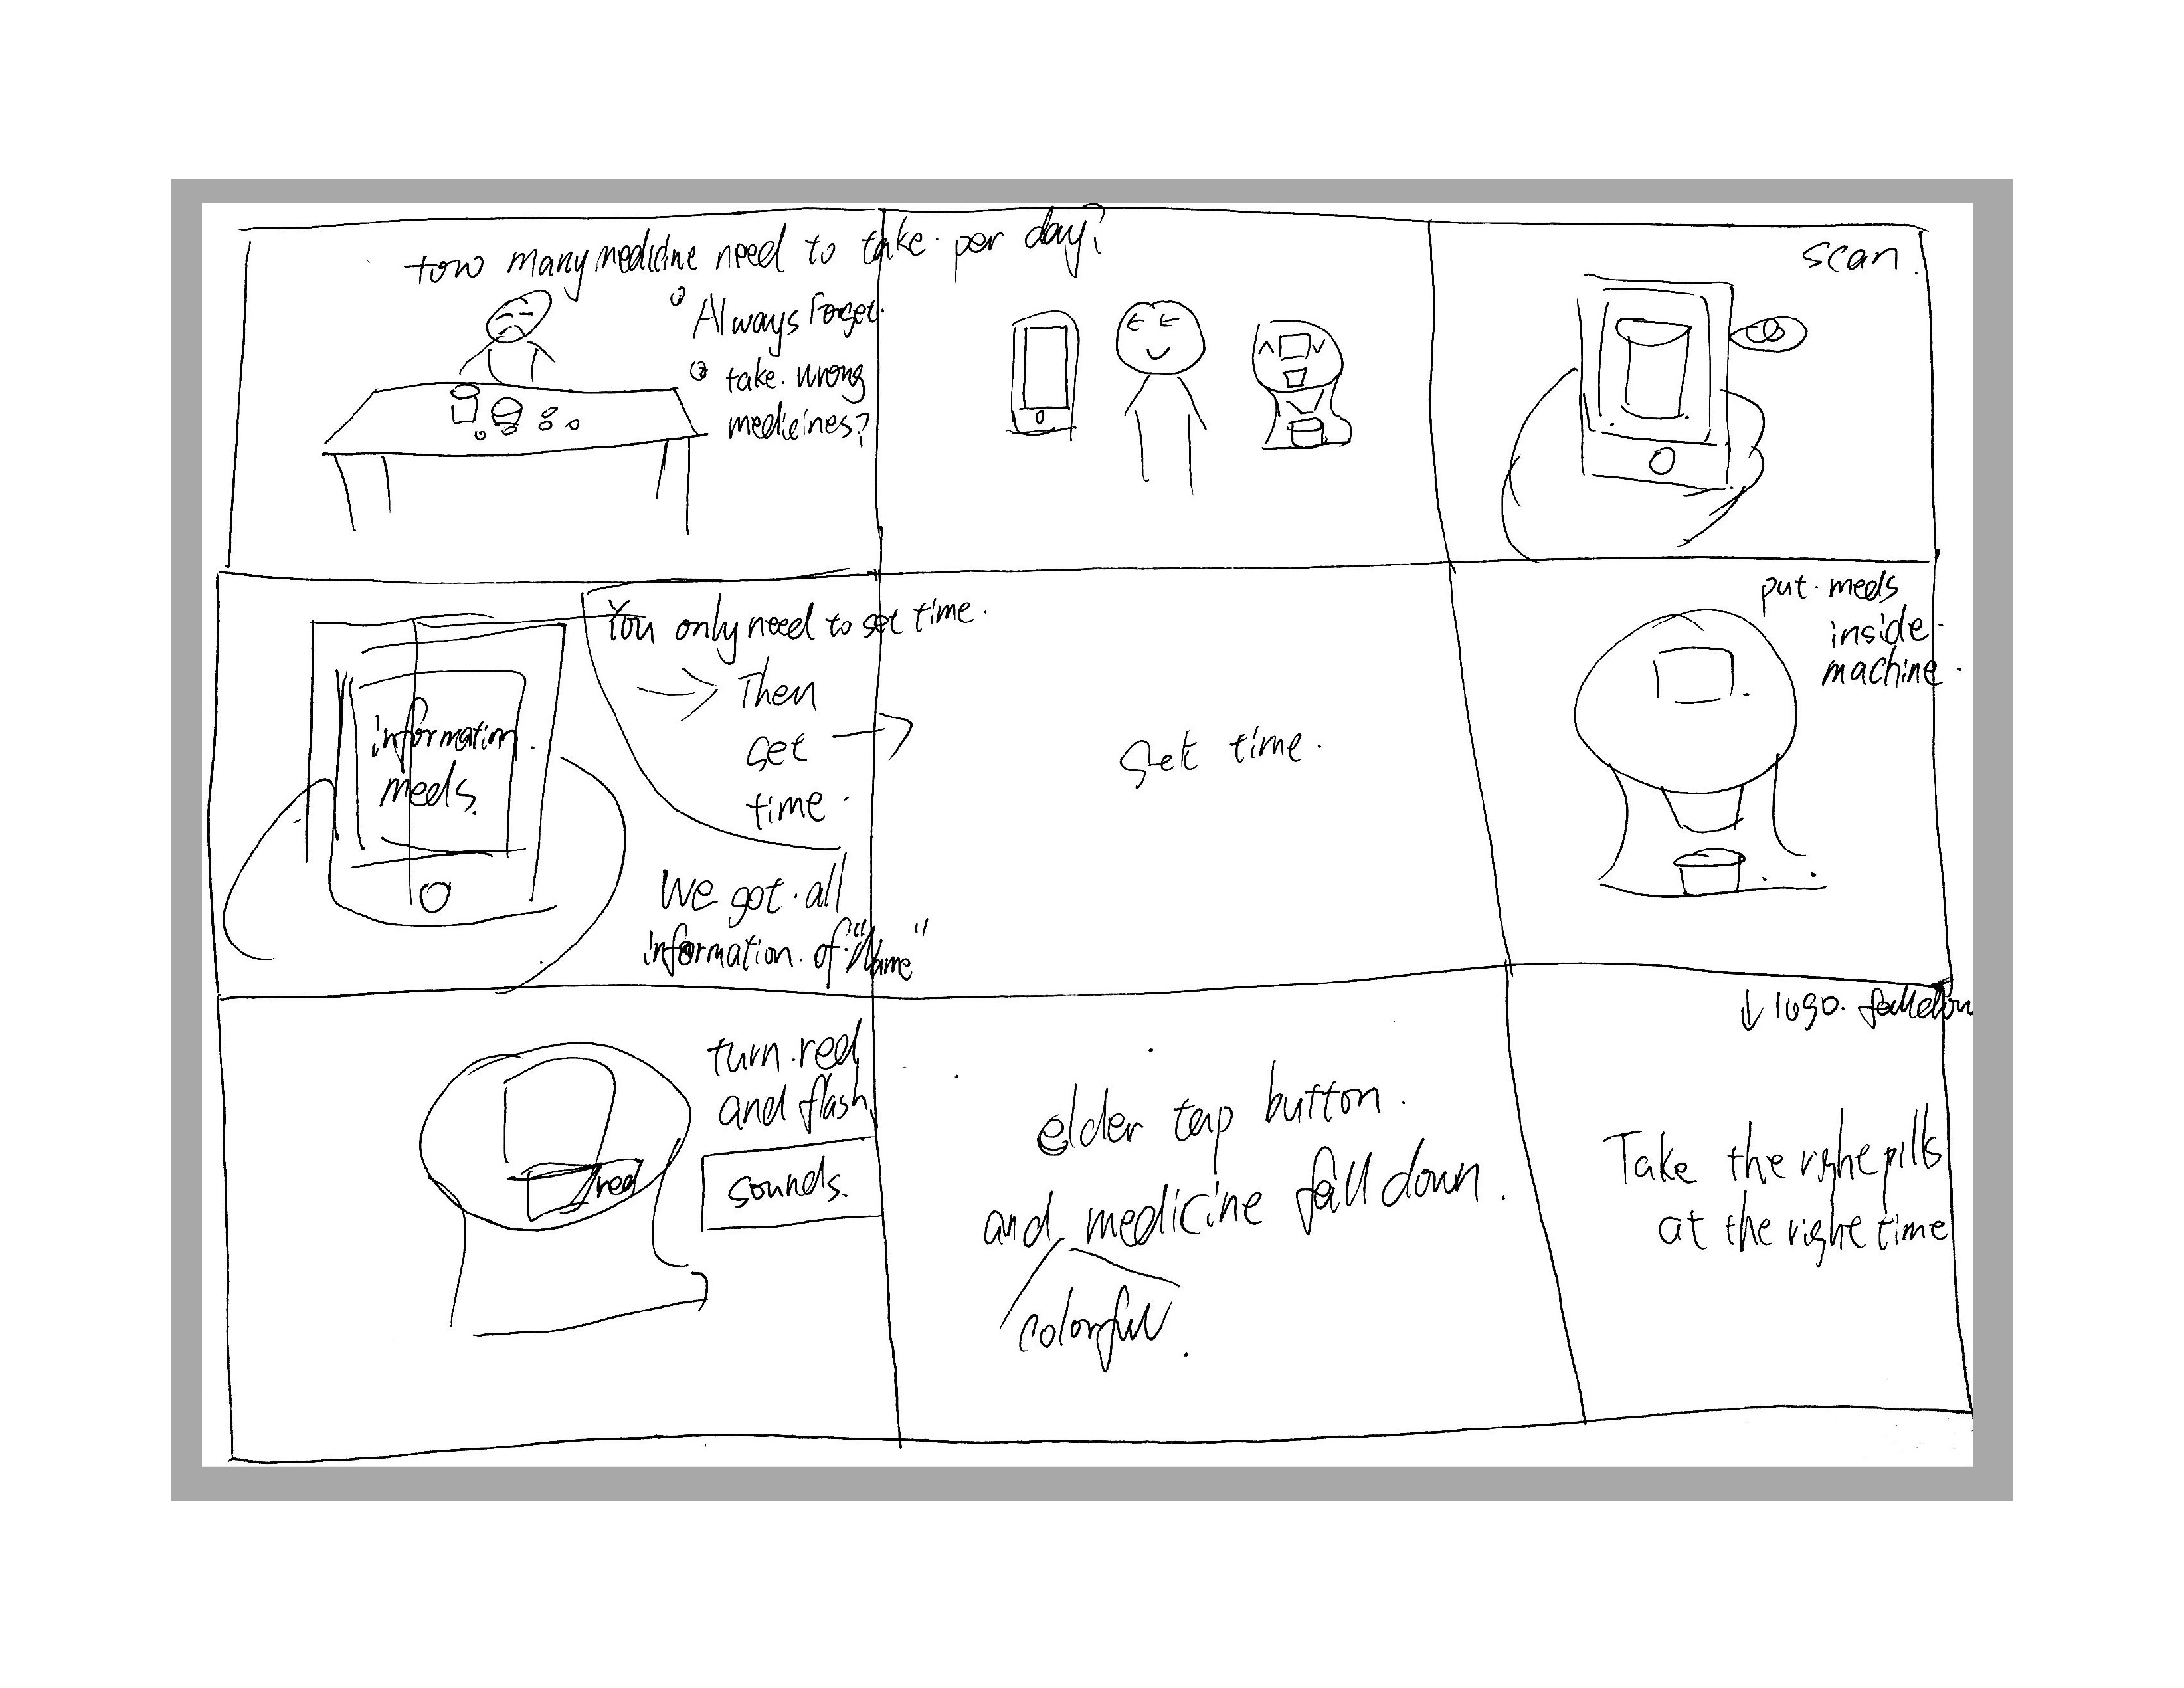 How many medicine need to take. per day?
① Always Forget.
② take. wrong
medicines?
scan.
You only need to set time.
→ Then
set →
time.
information.
meds.
We got. all
information. of "Name"
Set time.
put. meds
inside.
machine.
turn. red
and flash.
red
sounds.
elder tap button.
and medicine fall down.
colorful.
↓ logo.
Take the right pills
at the right time